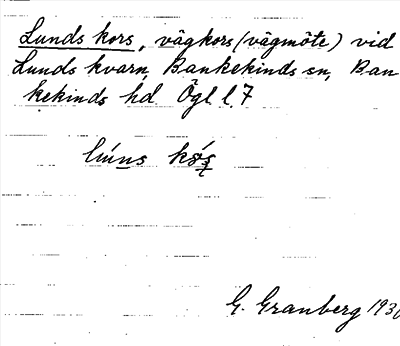 Lunds kors, vägkors (vägmöte) vid
Lunds kvarn, Bankekinds sn, Ban
kekinds hd Ögl l. 7
G. Granberg